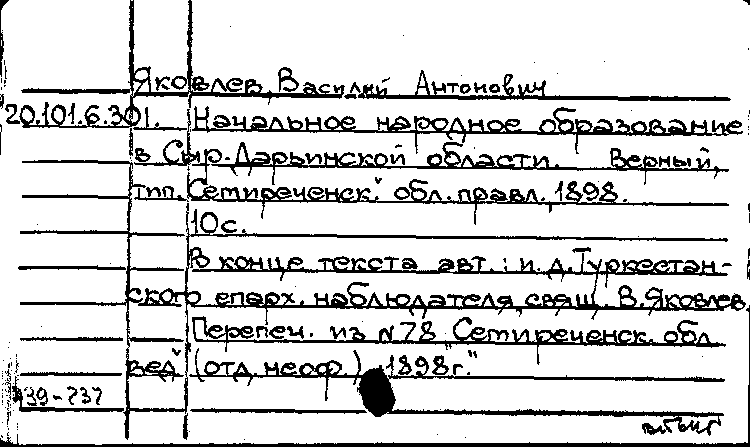 Яковлев, Василий Антонович
20.101.6.301. Начальное народное образование
в Сыр-Дарьинской области. Верный,
тип. Семиреченск. обл. правл., 1898.
10с.
В конце текста авт.: и.д. Туркестан-
ского епарх. наблюдателя, свящ. В. Яковлев.
Перепеч. из №78 "Семиреченск. обл.
вед." (отд. неоф.) 1898 г."
39-237